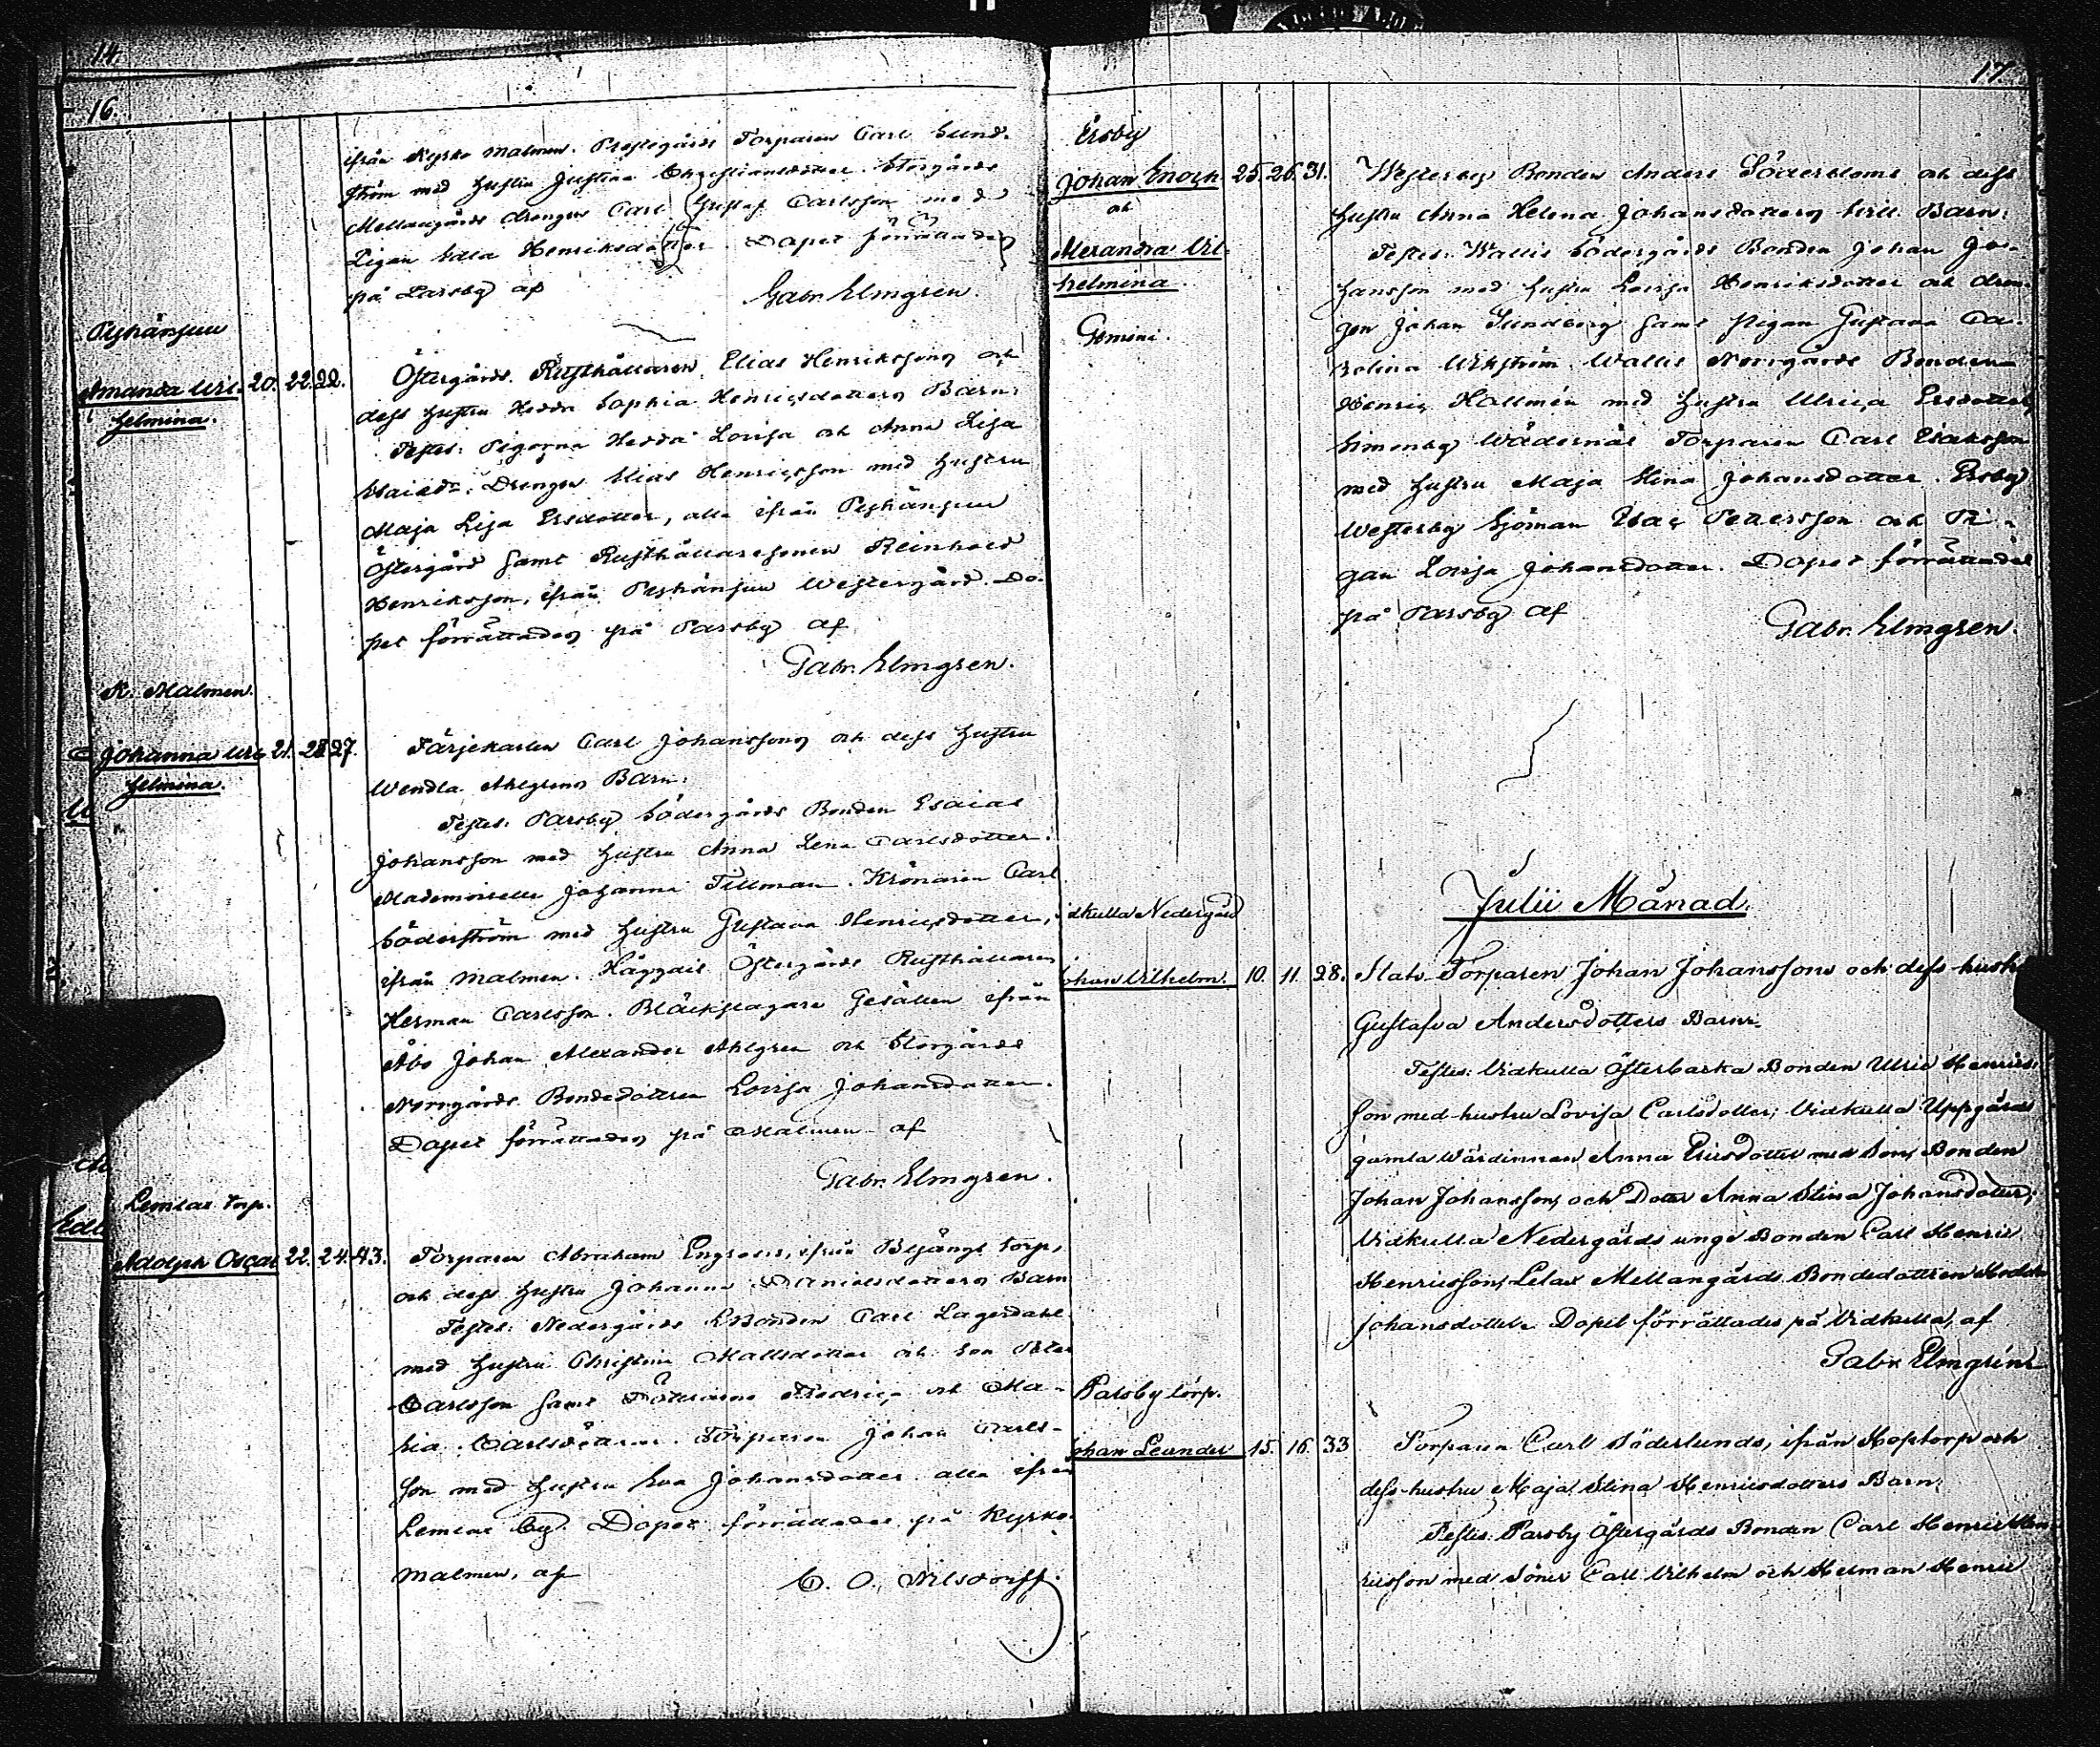 14.
16.
ifrån Kyrko Malmen. Prostgårds Torparen Carl Lund-
ström med hustru Justina Christiansdotter. Storgårds
Mellangårds drengen Carl Gustaf Carlsson med
Pigan Edla Henriksdotter. Dopet förrättades
på Parsby af
Gabr. Elmgren.
Pejhänsuu
Amanda Wil- 20. 22. 22.
helmina.
Östergårds Rusthållaren Elias Henrikssons och
dess hustru Hedda Sophia Henricsdotters Barn:
Testes: Pigorna Hedda Lovisa och Anna Lisa
Esaiæ dr. Drengen Elias Henricsson med hustru
Maja Lisa Ersdotter, alla ifrån Pejhänsuu
Östergård samt Rusthållaresonen Reinhold
Henriksson, ifrån Pejhänsuu Westergård. Do-
pet förrättades på Parsby af
Gabr. Elmgren.
K. Malmen.
Johanna Wil- 21. 27.
helmina.
Färjekarlen Carl Johanssons och dess hustru
Wendla Ahlgrens Barn:
Testes: Parsby Södergårds Bonden Esaias
Johansson med hustru Anna Lena Carlsdotter.
Mademoiselle Johanna Tillman. Krönaren Carl
Söderström med hustru Gustava Henricsdotter,
ifrån Malmen. Häggais Östergårds Rusthållaren
Herman Carlsson. Bläckslagare Gesällen ifrån
Åbo Johan Alexander Ahlgren och Storgårds
Norrgårds Bondedottren Lovisa Johansdotter.
Dopet förrättades på Malmen af
Gabr. Elmgren.
Lemlax torp.
Adolph Oscar 22. 24. 43.
Torparen Abraham Engroos, ifrån torp,
och dess hustru Johanna Danielsdotters Barn
Testes: Nedergårds Bonden Carl Lagerdahl
med hustru Christina Mattsdotter och son Peter
Carlsson samt Döttrarne Fredrica och Ma-
ria Carlsdöttrar. Torparen Johan Carls-
son med hustru Eva Johansdotter alla ifrån
Lemlax by. Dopet förrättades på Kyrko-
malmen, af
C. O. Nilsdorff.
17
Ersby
Johan Enoch 25. 26. 31.
och
Alexandra Wil-
helmina.
Gemini.
Westerby Bonden Anders Söderbloms och dess
hustru Anna Helena Johansdotters tvill. Barn:
Testes: Wallis Södergårds Bonden Johan Jo-
hansson med hustru Lovisa Henriksdotter och dren-
gen Johan Sundberg samt pigan Gustava Ca-
rolina Wikström. Wallis Norrgårds Bonden
Henric Hallmén med hustru Ulrica Ersdotter,
Simonby Wädernäs Torparen Carl Isaksson
med hustru Maja Stina Johansdotter. Ersby
Westerby Sjöman Isac Pettersson och Pi-
gan Lovisa Johansdotter. Dopet förrättades
på Parsby af
Gabr. Elmgren.
Julii Månad.
idkulla Nedergård
ohan Wilhelm. 10. 11. 28.
Stats Torparen Johan Johanssons och dess hustru
Gustafva Andersdotters Barn.
Testes: Vidkulla Österbacka Bonden Ulric Henrics-
son med hustru Lovisa Carlsdotter; Vidkulla Uppgårds
gamla Wärdinnan Anna Ericsdotter med Son, Bonden
Johan Johansson, och Dotter Anna Stina Johansdotter;
Vidkulla Nedergårds unge Bonden Carl Henric
Henricsson; Lelax Mellangårds Bondedottren
Johansdotter. Dopet förrättades på Vidkulla, af
Gabr. Elmgren
Parsby torp.
Johan Leander 15. 16. 33
Torparen Carl Söderlunds, ifrån Hoptorp och
dess hustru Maja Stina Henricsdotters Barn:
Testes: Parsby Östergårds Bonden Carl Henric Hen-
ricsson med Söner Carl Wilhelm och Herman Henric